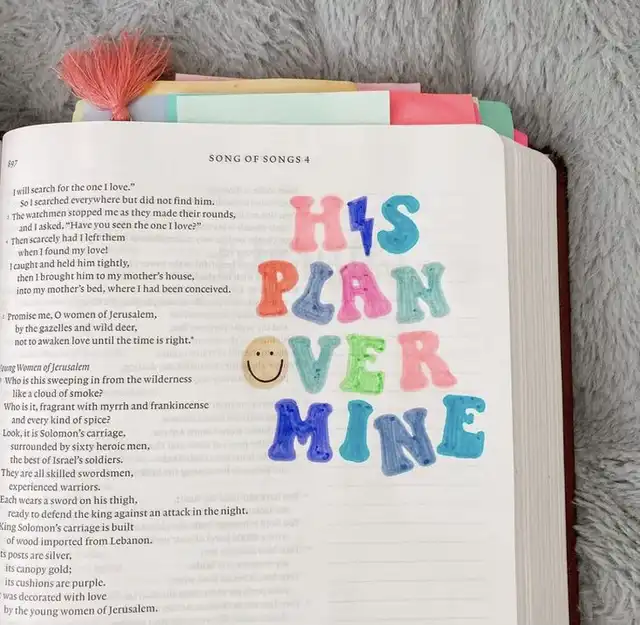 897
SONG OF SONGS 4
I will search for the one I love.”
So I searched everywhere but did not find him.
3 The watchmen stopped me as they made their rounds,
and I asked, “Have you seen the one I love?”
4 Then scarcely had I left them
when I found my love!
I caught and held him tightly,
then I brought him to my mother’s house,
into my mother’s bed, where I had been conceived.
5 Promise me, O women of Jerusalem,
by the gazelles and wild deer,
not to awaken love until the time is right.*
Young Women of Jerusalem
Who is this sweeping in from the wilderness
like a cloud of smoke?
Who is it, fragrant with myrrh and frankincense
and every kind of spice?
Look, it is Solomon’s carriage,
surrounded by sixty heroic men,
the best of Israel’s soldiers.
They are all skilled swordsmen,
experienced warriors.
Each wears a sword on his thigh,
ready to defend the king against an attack in the night.
King Solomon’s carriage is built
of wood imported from Lebanon.
Its posts are silver,
its canopy gold;
its cushions are purple.
was decorated with love
by the young women of Jerusalem.
HIS
PLAN
OVER
MINE